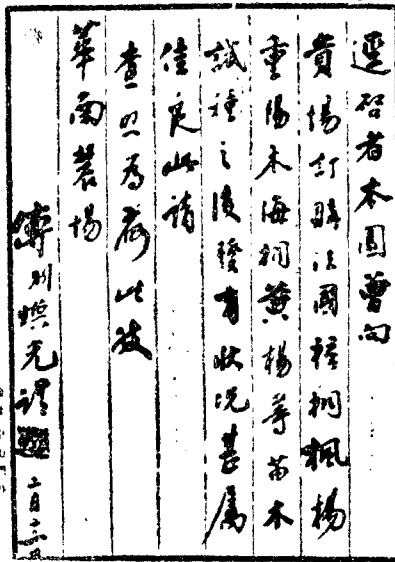 逕啓者本園曾向
貴場訂購法國梧桐楓楊
重陽木海桐黃楊等苗木
試種之後發育狀况甚属
佳良此請
查照為荷此致
華南農場
二月